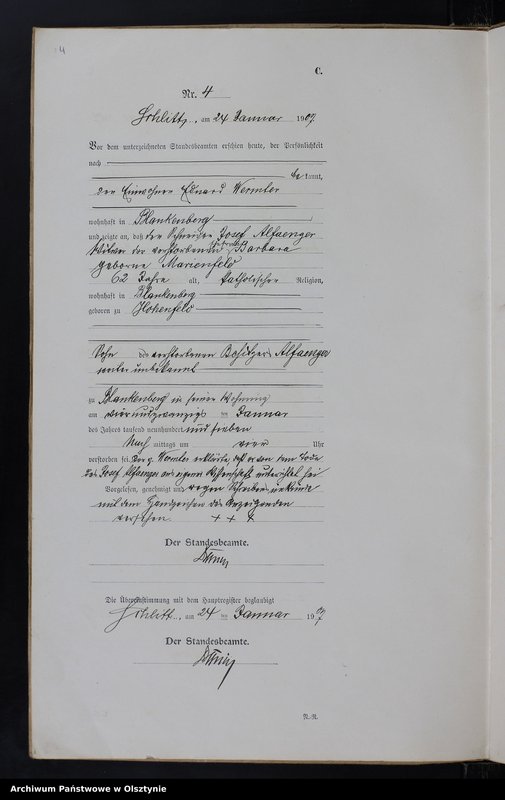 4
C.
Nr. 4
Schlitt, am 24 Januar 1907
Vor dem unterzeichneten Standesbeamten erschien heute, der Persönlichkeit
nach
bekannt,
der Einwohner Eduard Wermter
wohnhaft in Blankenberg
und zeigte an, daß der Schneider Josef Alfaenger
Witwer der verstorbenen Barbara
geborne Marienfeld
62 Jahre alt, katholischer Religion,
wohnhaft in Blankenberg
geboren zu Hohenfeld
Sohn des verstorbenen Besitzers Alfaenger
weiter unbekannt
zu Blankenberg in seiner Wohnung
am vierundzwanzigsten Januar
des Jahres tausend neunhundert und sieben
Nachmittags um vier Uhr
verstorben sei. Der p. Wermter erklärte, daß er von dem Tode
des Josef Alfaenger aus eigener Wissenschaft unterrichtet sei
Vorgelesen, genehmigt und wegen Schreibensunkunde
mit dem Handzeichen des Anzeigenden
versehen. + + +
Der Standesbeamte.
Die Übereinstimmung mit dem Hauptregister beglaubigt
Schlitt, am 24 ten Januar 1907
Der Standesbeamte.
Archiwum Państwowe w Olsztynie